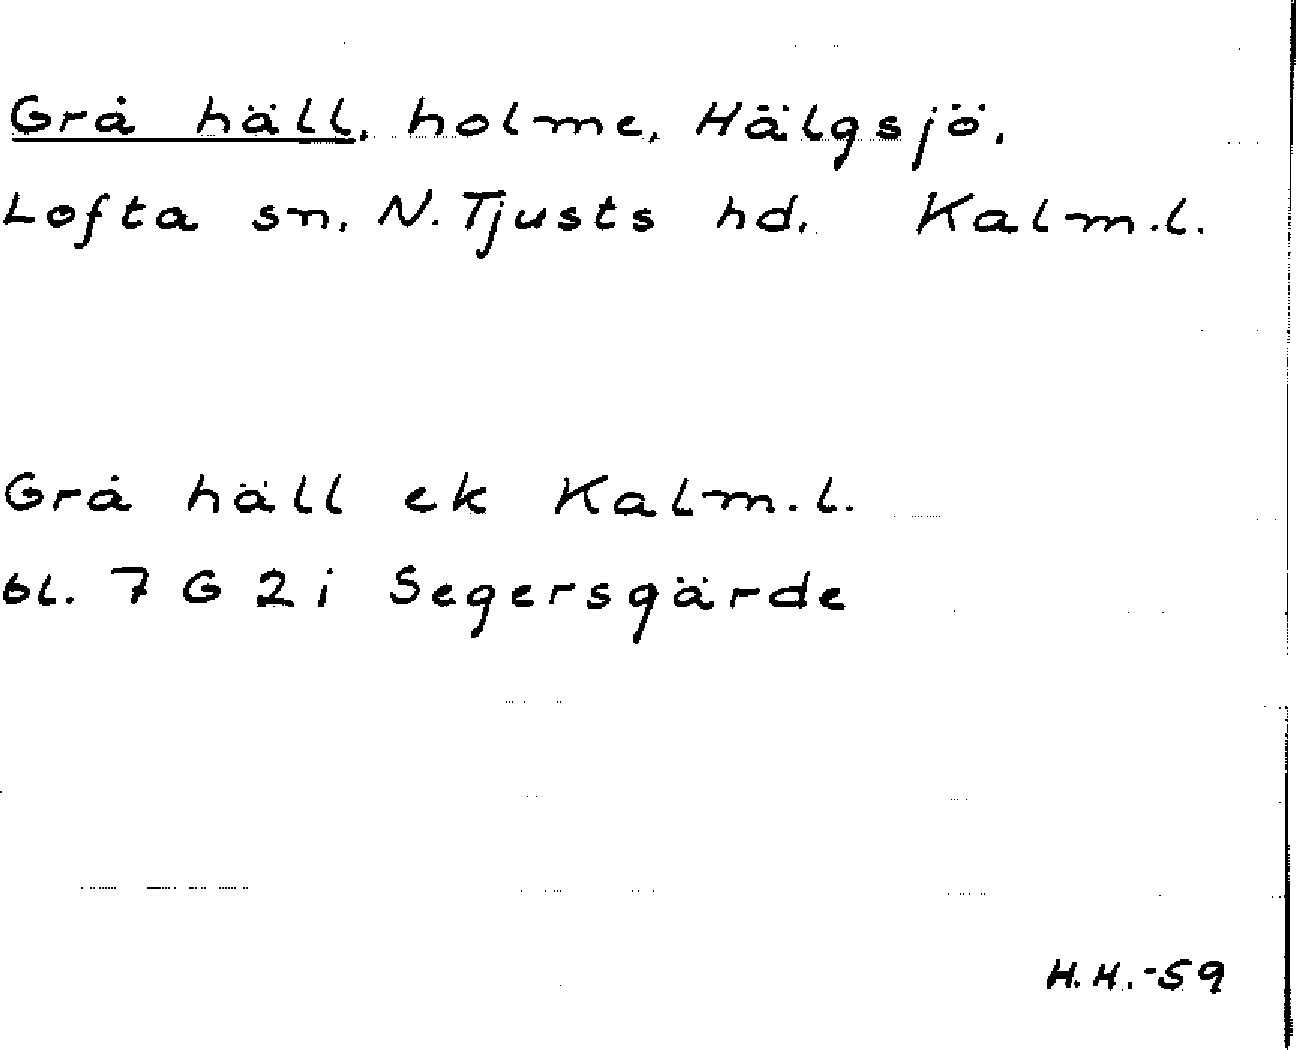 Grå häll, holme, Hälgsjö,
Lofta sn, N. Tjusts hd. Kalm.l.
Grå häll ek Kalm.l.
bl. 7 G 2 i Segersgärde
H.H.-59